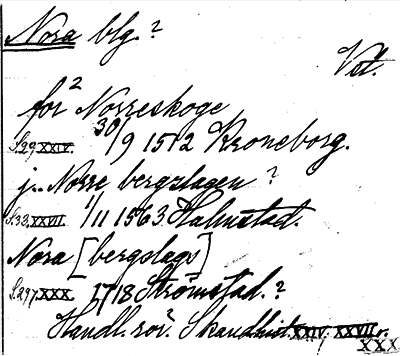 Nora blg.?
Vst.
för² Norreskoge
S.29 XXIV. 30/9 1512 Kroneborg.
j.. Norre bergslagen ?
S.33 XXVII. 1/11 1563 Halmstad.
Nora [bergslags]
S.297 XXX. 1718 Strömstad.?
Handl. rör. Skand. hist. XXIV, XXVII o.
XXX